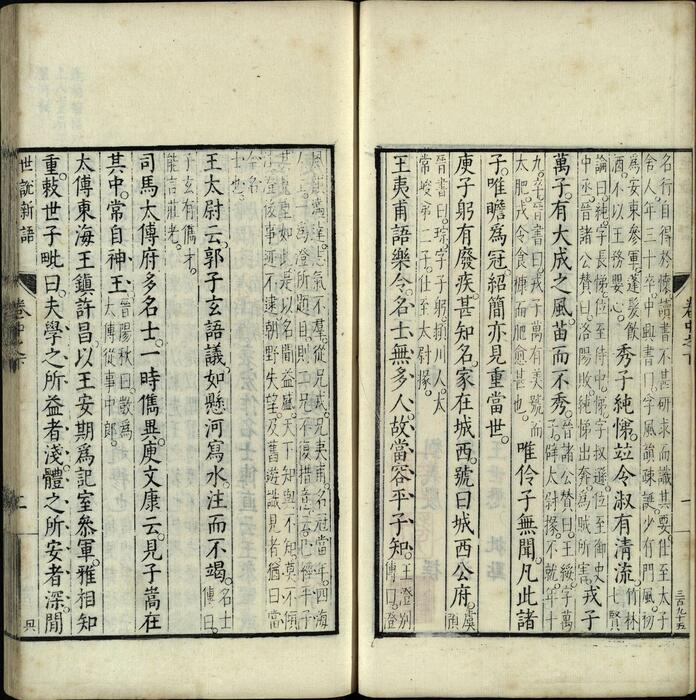 名行自得於懷讀書不甚研求而識其要仕至太子
舍人年三十卒中興書曰孚風韻疎誕少有門風初
爲安東參軍蓬髮飲
酒不以王務嬰心
秀子純悌竝令淑有清流
竹林
七賢
論曰純字長悌位至侍中悌字叔遜位至御史
中丞晉諸公贊曰洛陽敗純悌出奔爲賊所害
戎子
萬子有大成之風苗而不秀
晉諸公贊曰王綏字萬
子辟太尉掾不就年十
九卒晉書曰戎子萬有美號而
太肥戎令食糠而肥愈甚也
唯伶子無聞凡此諸
子唯瞻爲冠紹簡亦見重當世
庾子躬有廢疾甚知名家在城西號曰城西公府
虞
預
晉書曰琮字子躬潁川人太
常峻第二子仕至太尉掾
王夷甫語樂令名士無多人故當容平子知
王澄別
傳曰澄
風韻邁達志氣不羣從兄戎兄夷甫名冠當年四海
人士一爲澄所題目則二兄不復措意云已經平子
其見重如此是以名聞益盛天下知與不知莫不傾
注澄後事迹不逮朝野失望及舊遊識見者猶曰當
今名
士也
王太尉云郭子玄語議如懸河寫水注而不竭
名士
傳曰
子玄有儁才
能言莊老
司馬太傅府多名士一時儁異庾文康云見子嵩在
其中常自神王
晉陽秋曰敳爲
太傅從事中郎
太傅東海王鎮許昌以王安期爲記室參軍雅相知
重敕世子毗曰夫學之所益者淺體之所安者深閒
世說新語
卷中之下